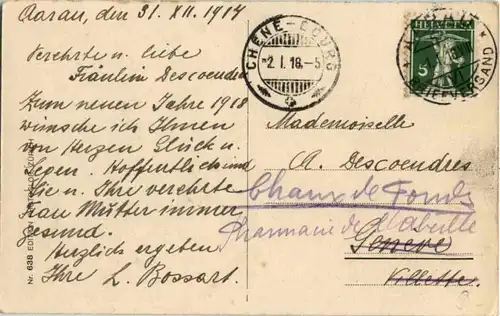 Aarau, den 31. XII. 1917
Verehrte u. liebe
Fräulein Descoeudres
Zum neuen Jahre 1918
wünsche ich Ihnen
von Herzen Glück u.
Segen. Hoffentlich sind
Sie u. Ihre verehrte
Frau Mutter immer
gesund.
Herzlich ergeben
Ihre L. Bossart.
CHÊNE-BOURG
2. I. 18.-5
HELVETIA
5
BRIEFVERSAND
Mademoiselle
A. Descoeudres
Chaux de Fonds
Pharmacie de l'Abeille
Genève
Villette.
Nr. 638 EDITION